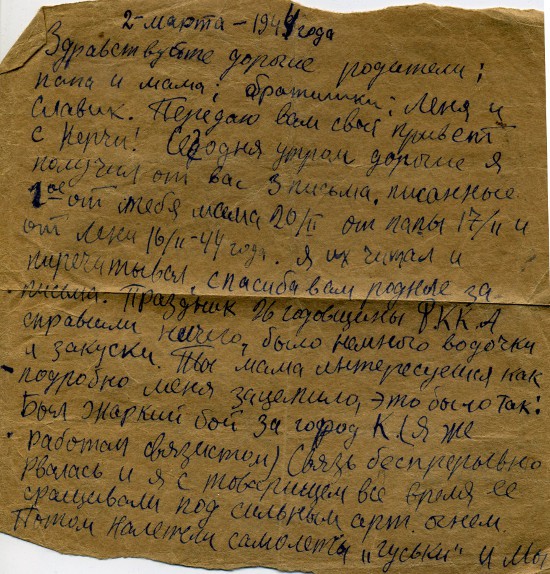 2-марта-1944 года
Здравствуйте дорогие родители;
папа и мама; братишки; Леня и
Славик. Передаю вам свой привет
с Керчи! Сегодня утром дорогие я
получил от вас 3 письма, писанные
1-ое от тебя мама 20/II от папы 17/II и
от Лени 16/II-44 года. Я их читал и
перечитывал, спасиба вам родные за
письма. Праздник 26 годовщины РККА
справили ничего, было немного водочки
и закуски. Ты мама интересуешся как
подробно меня зацепило, это было так:
Был жаркий бой за город К. (я же
работал связистом) Связь беспрерывно
рвалась и я с товарищем все время ее
сращивали под сильным арт. огнем.
Потом налетели самолеты „гуськи" и мы